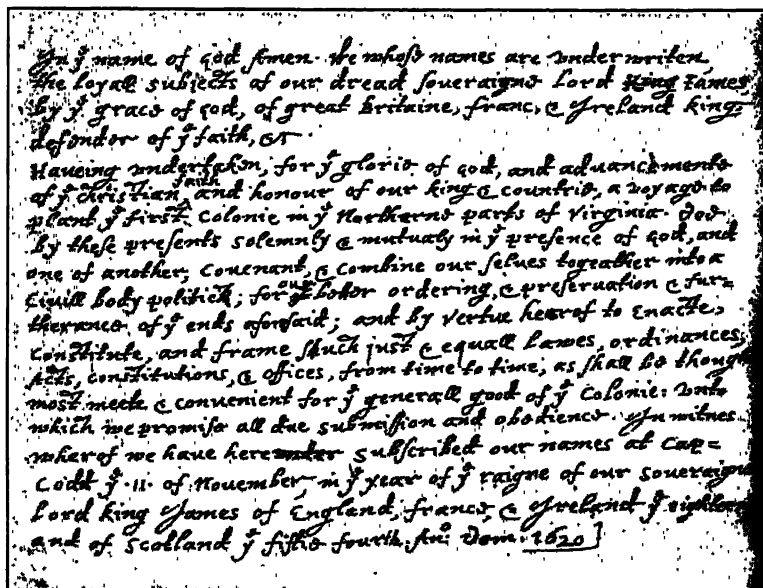 In yͤ name of god Amen· We whose names are underwriten,
the loyall subjects of our dread soveraigne Lord King James
by yͤ grace of god, of great Britaine, franc, & Ireland king,
defender of yͤ faith, &c
Haveing undertaken, for yͤ glorie of god, and advancemente
of yͤ christian faith and honour of our king & countrie, a voyage to
plant yͤ first colonie in yͤ Northerne parts of Virginia· doe
by these presents solemnly & mutualy in yͤ presence of god, and
one of another, covenant, & combine our selves togeather into a
Civill body politick; for our better ordering, & preservation & fur=
therance of yͤ ends aforesaid; and by vertue hearof to enacte,
constitute, and frame shuch just & equall lawes, ordinances,
Acts, constitutions, & offices, from time to time, as shall be thought
most meete & convenient for yͤ generall good of yͤ Colonie: unto
which we promise all due submission and obedience. In witnes
wherof we have hereunder subscribed our names at Cap=
Codd yͤ ·11· of November, in yͤ year of yͤ raigne of our soveraigne
Lord king James of England, france, & Ireland yͤ eighteen
and of Scotland yͤ fiftie fourth. Anͦ: Dom· 1620]